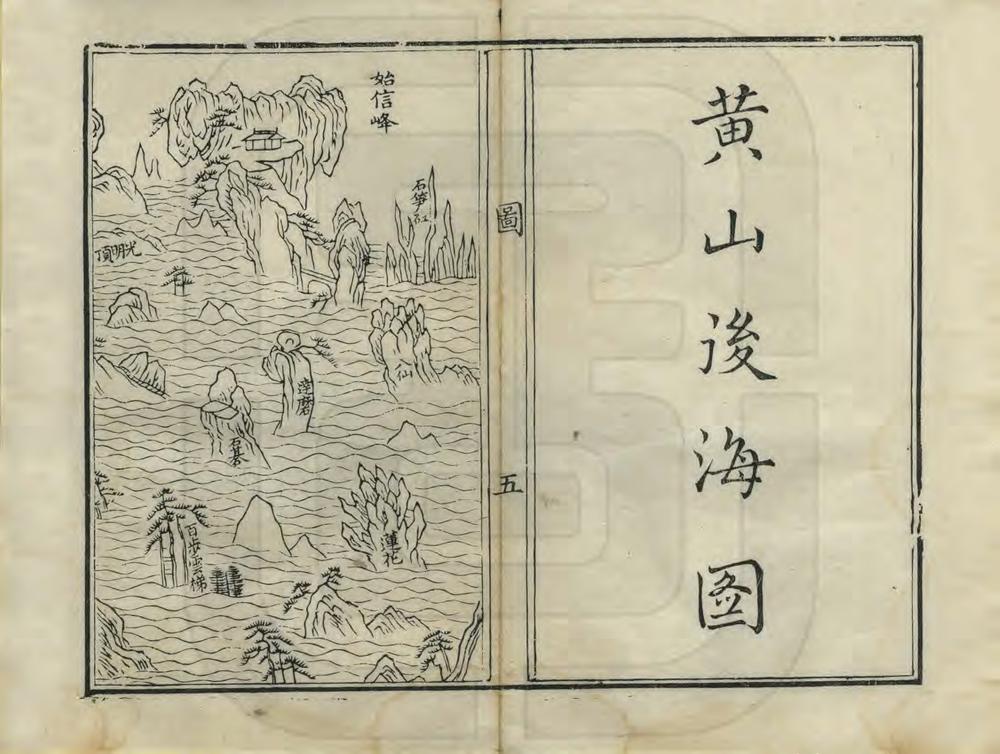 黄山後海圖
圖
五
始信峰
石筍矼
光明頂
仙
達磨
石碁
蓮花
百步雲梯